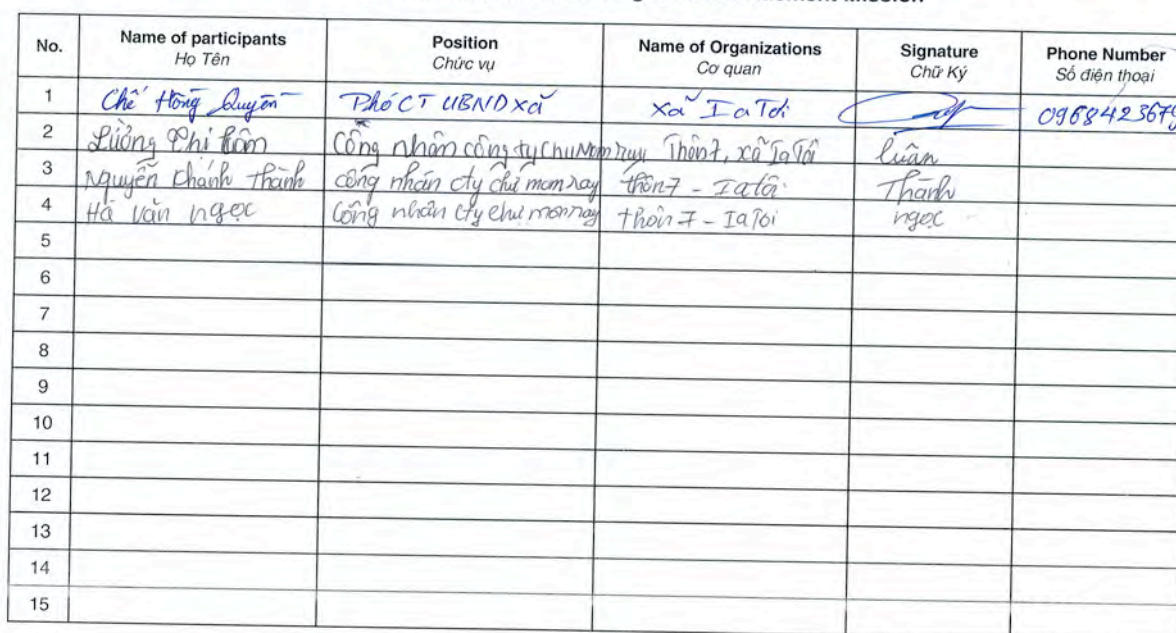 No. Name of participants Position Name of Organizations Signature Phone Number
Họ Tên Chức vụ Cơ quan Chữ Ký Số điện thoại
1 Chế Hồng Quyền Phó CT UBND xã xã Ia Tơi 096842367
2 Lường Phi công nhân công ty Chu Mom ray Thôn 7, xã Ia Tơi luân
3 Nguyễn Khánh Thành công nhân cty chư mom ray thôn 7 - Ia tơi Thành
4 Hà văn ngọc công nhân cty chư mom ray thôn 7 - Ia Tơi ngọc
5
6
7
8
9
10
11
12
13
14
15